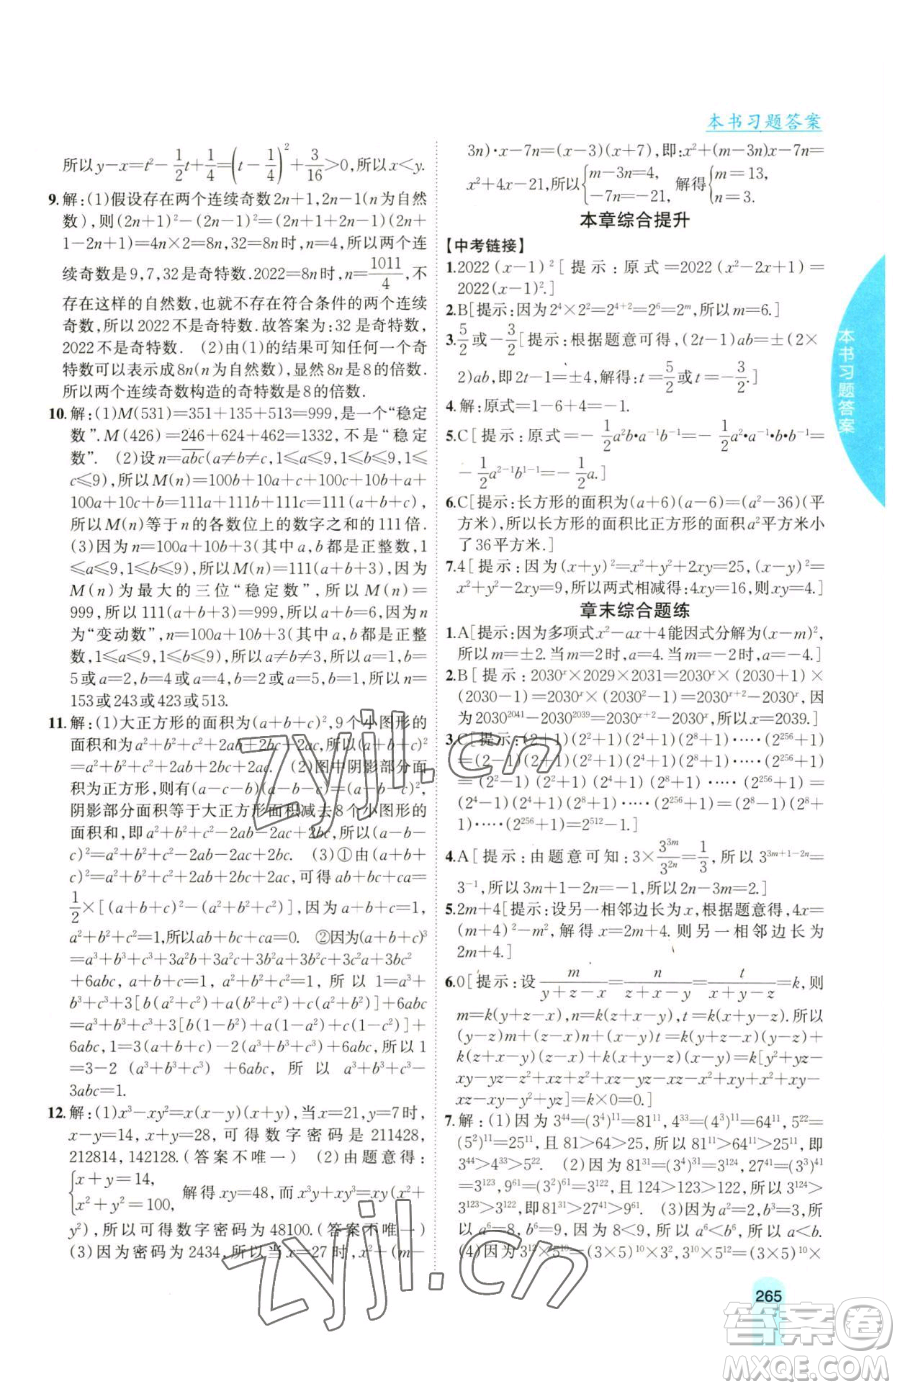 本书习题答案
所以y−x=t²−1/2t+1/4=(t−1/4)²+3/16>0,所以x<y.
9.解:(1)假设存在两个连续奇数2n+1,2n−1(n为自然
数),则(2n+1)²−(2n−1)²=(2n+1+2n−1)(2n+
1−2n+1)=4n×2=8n,32=8n时,n=4,所以两个连
续奇数是9,7,32是奇特数.2022=8n时,n=1011/4,不
存在这样的自然数,所以不存在符合条件的两个连续
奇数,所以2022不是奇特数.故答案为:32是奇特数,
2022不是奇特数. (2)由(1)的结果可知任何一个奇
特数可以表示成8n(n为自然数),8n是8的倍数.
所以两个连续奇数构造的奇特数是8的倍数.
10.解:(1)M(531)=351+135+513=999,是一个“稳定
数”.M(426)=246+624+462=1332,不是“稳定
数”. (2)设n=abc(a≠b≠c,1≤a≤9,1≤b≤9,1
≤c≤9),M(n)=100b+10a+c+100c+10b+a+
100a+10c+b=111a+111b+111c=111(a+b+c),
所以M(n)等于n的各数位上的数字之和的111倍.
(3)因为n=100a+10b+3,a,b,c都是正整数,1
≤a≤9,1≤b≤9),所以M(n)=111(a+b+3),因为
M(n)为最大的三位“稳定数”,所以M(n)=
999,所以111(a+b+3)=999,所以a+b=6,因为n
为“变动数”,所以a≠b≠3,因为a,b都是正整数,
1≤a≤9,1≤b≤9,所以a=1,b=
5或a=2,b=4或a=4,b=2或a=5,b=1,所以n=
153或243或423或513.
11.解:(1)大正方形的面积为(a+b+c)²,9个小图形的
面积和为a²+b²+c²+2ab+2bc+2ac,所以(a+b+c)²
=a²+b²+c²+2ab+2bc+2ac. (2)图中阴影部分面
积为正方形,则有(a−b−c)(a−b−c)=(a−b−c)²,
阴影部分面积等于大正方形面积减去8个小图形的
面积和,即a²+b²+c²−2ab−2ac+2bc,所以(a−b−
c)²=a²+b²+c²−2ab−2ac+2bc. (3)①由(1)可得ab+bc+ac=
1/2×[(a+b+c)²−(a²+b²+c²)],因为a+b+c=1,
a²+b²+c²=1,所以ab+bc+ca=0. ②因为(a+b+c)³
=a³+b³+c³+3a²b+3a²c+3ab²+3b²c+3ac²+3bc²
+6abc, a+b+c=1, 所以1=a³+
b³+c³+3[a(b²+c²)+b(a²+c²)+c(a²+b²)]+6abc
=a³+b³+c³+3[a(1−a²)+b(1−b²)+c(1−c²)]+
6abc,1=a³+b³+c³+3(a+b+c)−3(a³+b³+c³)+6abc,所以1
=3−2(a³+b³+c³)+6abc,所以a³+b³+c³−
3abc=1.
12.解:(1)x³−xy²=x(x−y)(x+y),当x=21,y=7时,
x−y=14,x+y=28,可得数字密码为211428,
212814,142128.(答案不唯一) (2)由题意得:
{x+y=14, x²+y²=100, 解得xy=48,而x³y+xy³=xy(x²+
y²),所以可得数字密码为48100.(答案不唯一)
(3)因为密码为2434,所以当x=27时,x²+(m−
3n)·x−7n=(x−3)(x+7),即:x²+(m−3n)x−7n=
x²+4x−21,所以{m−3n=4, −7n=−21, 解得{m=13, n=3.
本章综合提升
【中考链接】
1.2022(x−1)²[提示:原式=2022(x²−2x+1)=
2022(x−1)².]
2.B[提示:因为2⁴×2²=2⁴⁺²=2⁶=2ᵐ,所以m=6.]
3.5/2或−3/2[提示:根据题意可得,(2t−1)ab=±(2·
2)ab,所以2t−1=±4,解得:t=5/2或t=−3/2.]
4.解:原式=1−6+4=−1.
5.C[提示:原式=−1/2a²b·a⁻¹b⁻¹=−1/2a²·a⁻¹·b·b⁻¹=
−1/2a²⁻¹b¹⁻¹=−1/2a.]
6.C[提示:长方形的面积为(a+6)(a−6)=(a²−36)(平
方米),所以长方形的面积比正方形的面积a²平方米小
了36平方米.]
7.4[提示:因为(x+y)²=x²+2xy+y²=25,(x−y)²=
x²+y²−2xy=9,所以两式相减得:4xy=16,则xy=4.]
章末综合题练
1.A[提示:因为多项式x²−ax+4能因式分解为(x−m)²,
所以m=±2.当m=2时,a=4.当m=−2时,a=−4.]
2.B[提示:2030ˣ×2029×2031=2030ˣ×(2030+1)×
(2030−1)=2030ˣ×(2030²−1)=2030ˣ⁺²−2030ˣ,
因为2030²⁰⁴¹−2030²⁰³⁹=2030ˣ⁺²−2030ˣ,所以x=2039.]
3.C[提示:(2+1)(2²+1)(2⁴+1)(2⁸+1)·····(2²⁵⁶+1)
=(2−1)(2+1)(2²+1)(2⁴+1)(2⁸+1)·····(2²⁵⁶+1)
=(2²−1)(2²+1)(2⁴+1)(2⁸+1)·····(2²⁵⁶+1)=(2⁴−
1)(2⁴+1)(2⁸+1)·····(2²⁵⁶+1)=2⁵¹²−1.]
4.A[提示:由题意可知:3×3³ᵐ/3²ⁿ=1/3,所以3³ᵐ⁺¹⁻²ⁿ=
3⁻¹,所以3m+1−2n=−1,所以3m−2n=−2.]
5.2m+4[提示:设另一相邻边长为x,根据题意可得,4x=
(m+4)²−m²,解得x=2m+4.则另一相邻边长为
2m+4.]
6.0[提示:设m/(y+z−x)=n/(z+x−y)=t/(x+y−z)=k,则
m=k(y+z−x),n=k(z+x−y),t=k(x+y−z).所以
(y−z)m+(z−x)n+(x−y)t=k(y+z−x)(y−z)+
k(z+x−y)(z−x)+k(x+y−z)(x−y)=k[y²+yz−
xy−yz−z²+xz+z²+xz−yz−xz−x²+xy+x²+
xy−xz−xy−y²+yz]=k×0=0.]
7.解:(1)因为3⁴⁴=(3⁴)¹¹=81¹¹,4³³=(4³)¹¹=64¹¹,5²²=
(5²)¹¹=25¹¹,且81>64>25,所以81¹¹>64¹¹>25¹¹,即
3⁴⁴>4³³>5²². (2)因为81³¹=(3⁴)³¹=3¹²⁴,27⁴¹=(3³)⁴¹
=3¹²³,9⁶¹=(3²)⁶¹=3¹²²,且124>123>122,所以3¹²⁴>
3¹²³>3¹²²,即81³¹>27⁴¹>9⁶¹. (3)因为a²=2,b³=3,所
以a⁶=8,b⁶=9,因为8<9,所以a⁶<b⁶,所以a<b.
(4)因为3¹²×5¹⁰=(3×5)¹⁰×3²,3¹⁰×5¹²=(3×5)¹⁰×
本书习题答案
265
zyjl.cn
zyjl.cn
答案圈
MXQE.COM